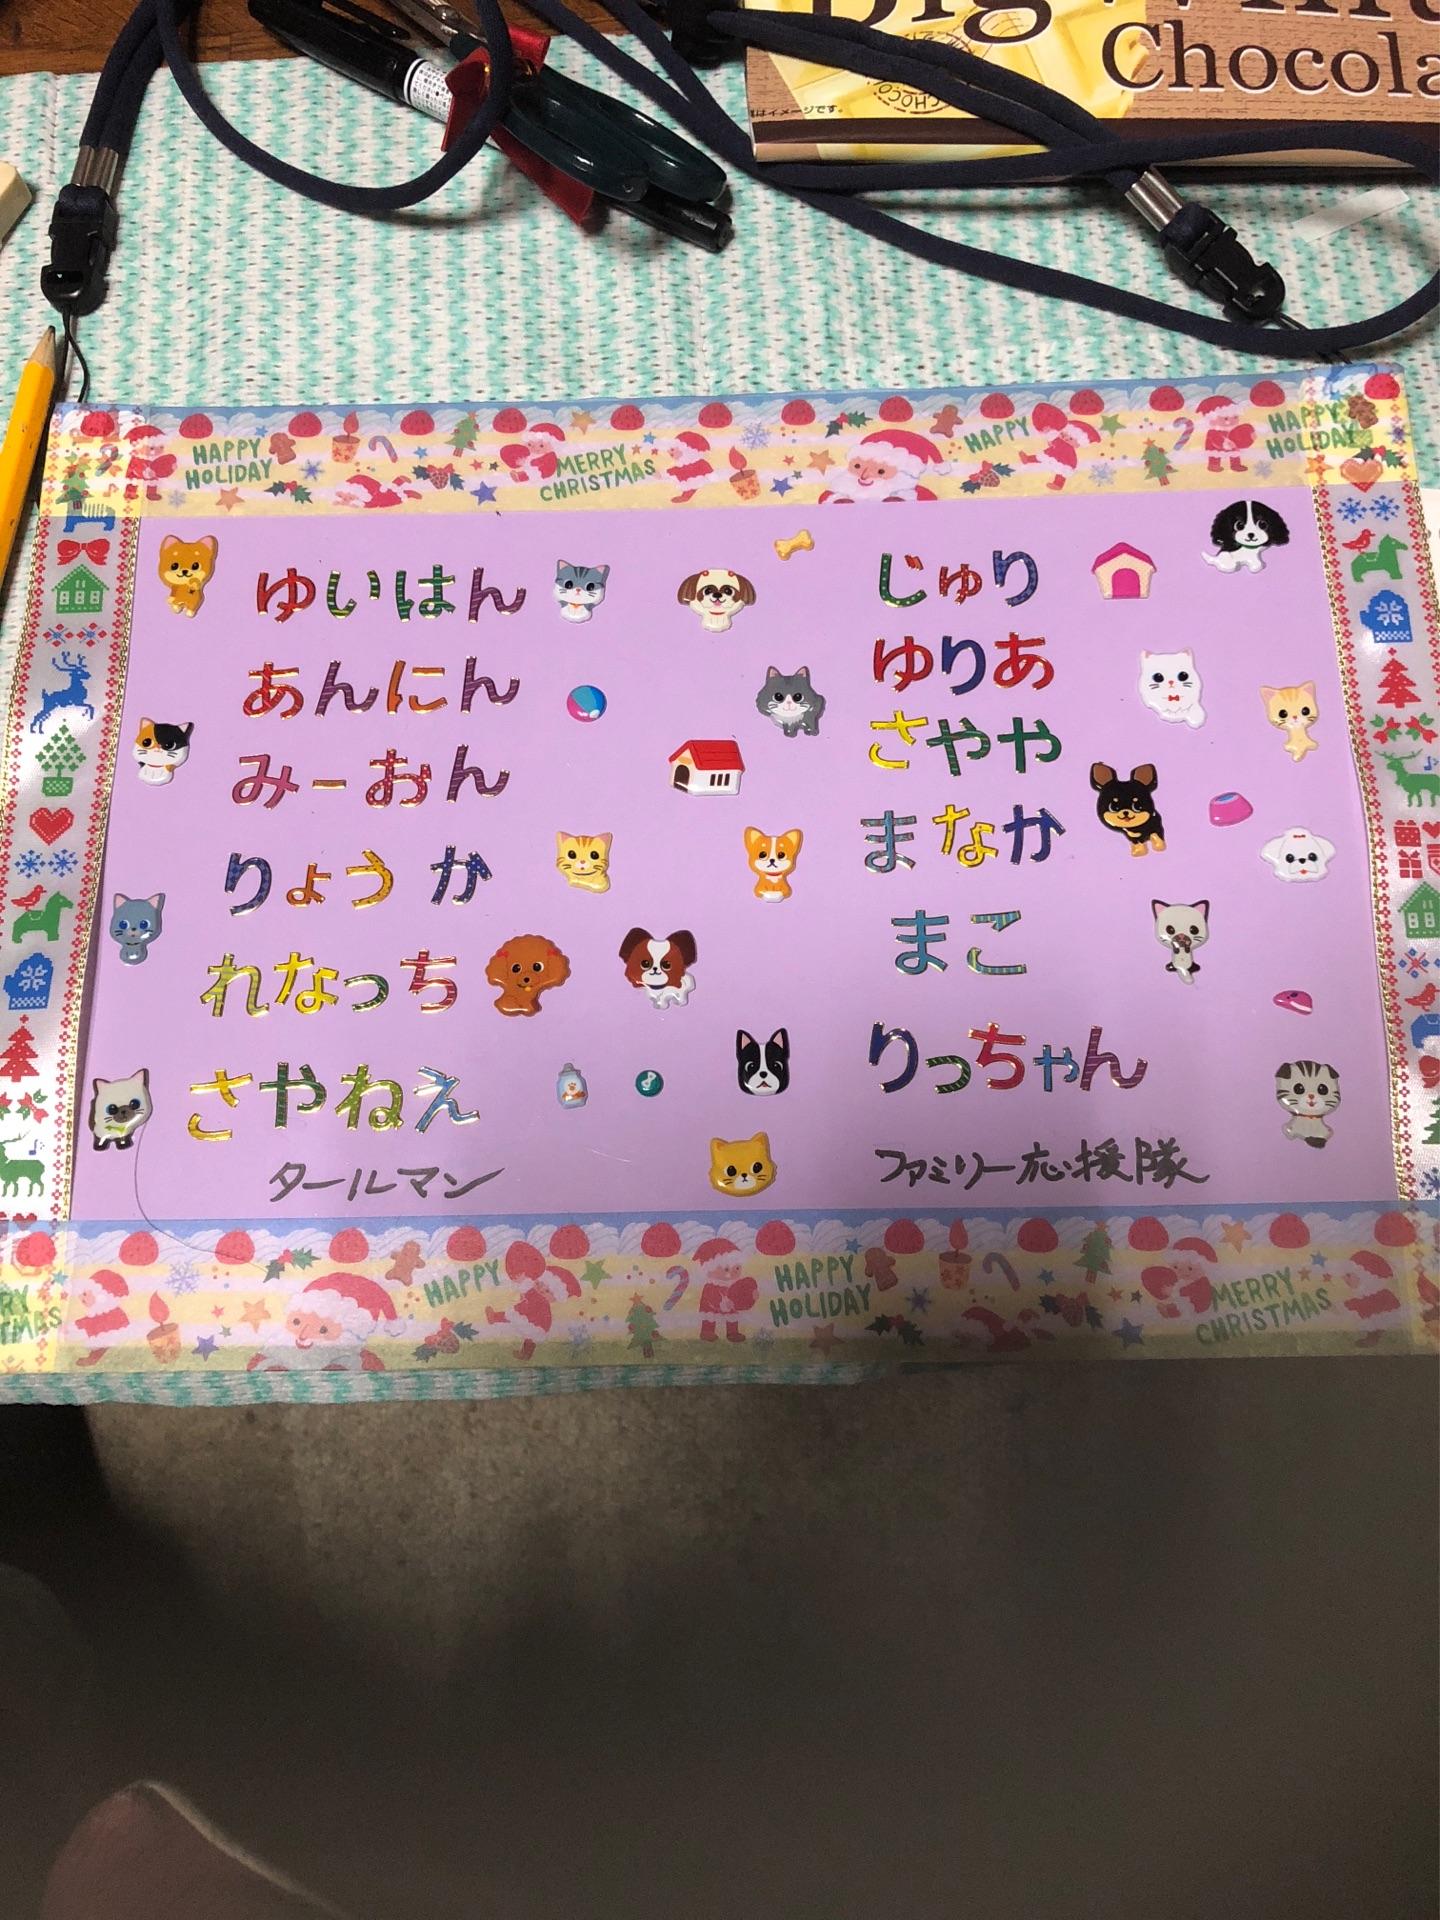 Chocola
はイメージです。
CHOCO
HAPPY HOLIDAY
MERRY CHRISTMAS
HAPPY
HAPPY HOLIDAY
ゆいはん
あんにん
みーおん
りょうか
れなっち
さやねえ
タールマン
じゅり
ゆりあ
さやや
まなか
まこ
りっちゃん
ファミリー応援隊
HAPPY
HAPPY HOLIDAY
MERRY CHRISTMAS